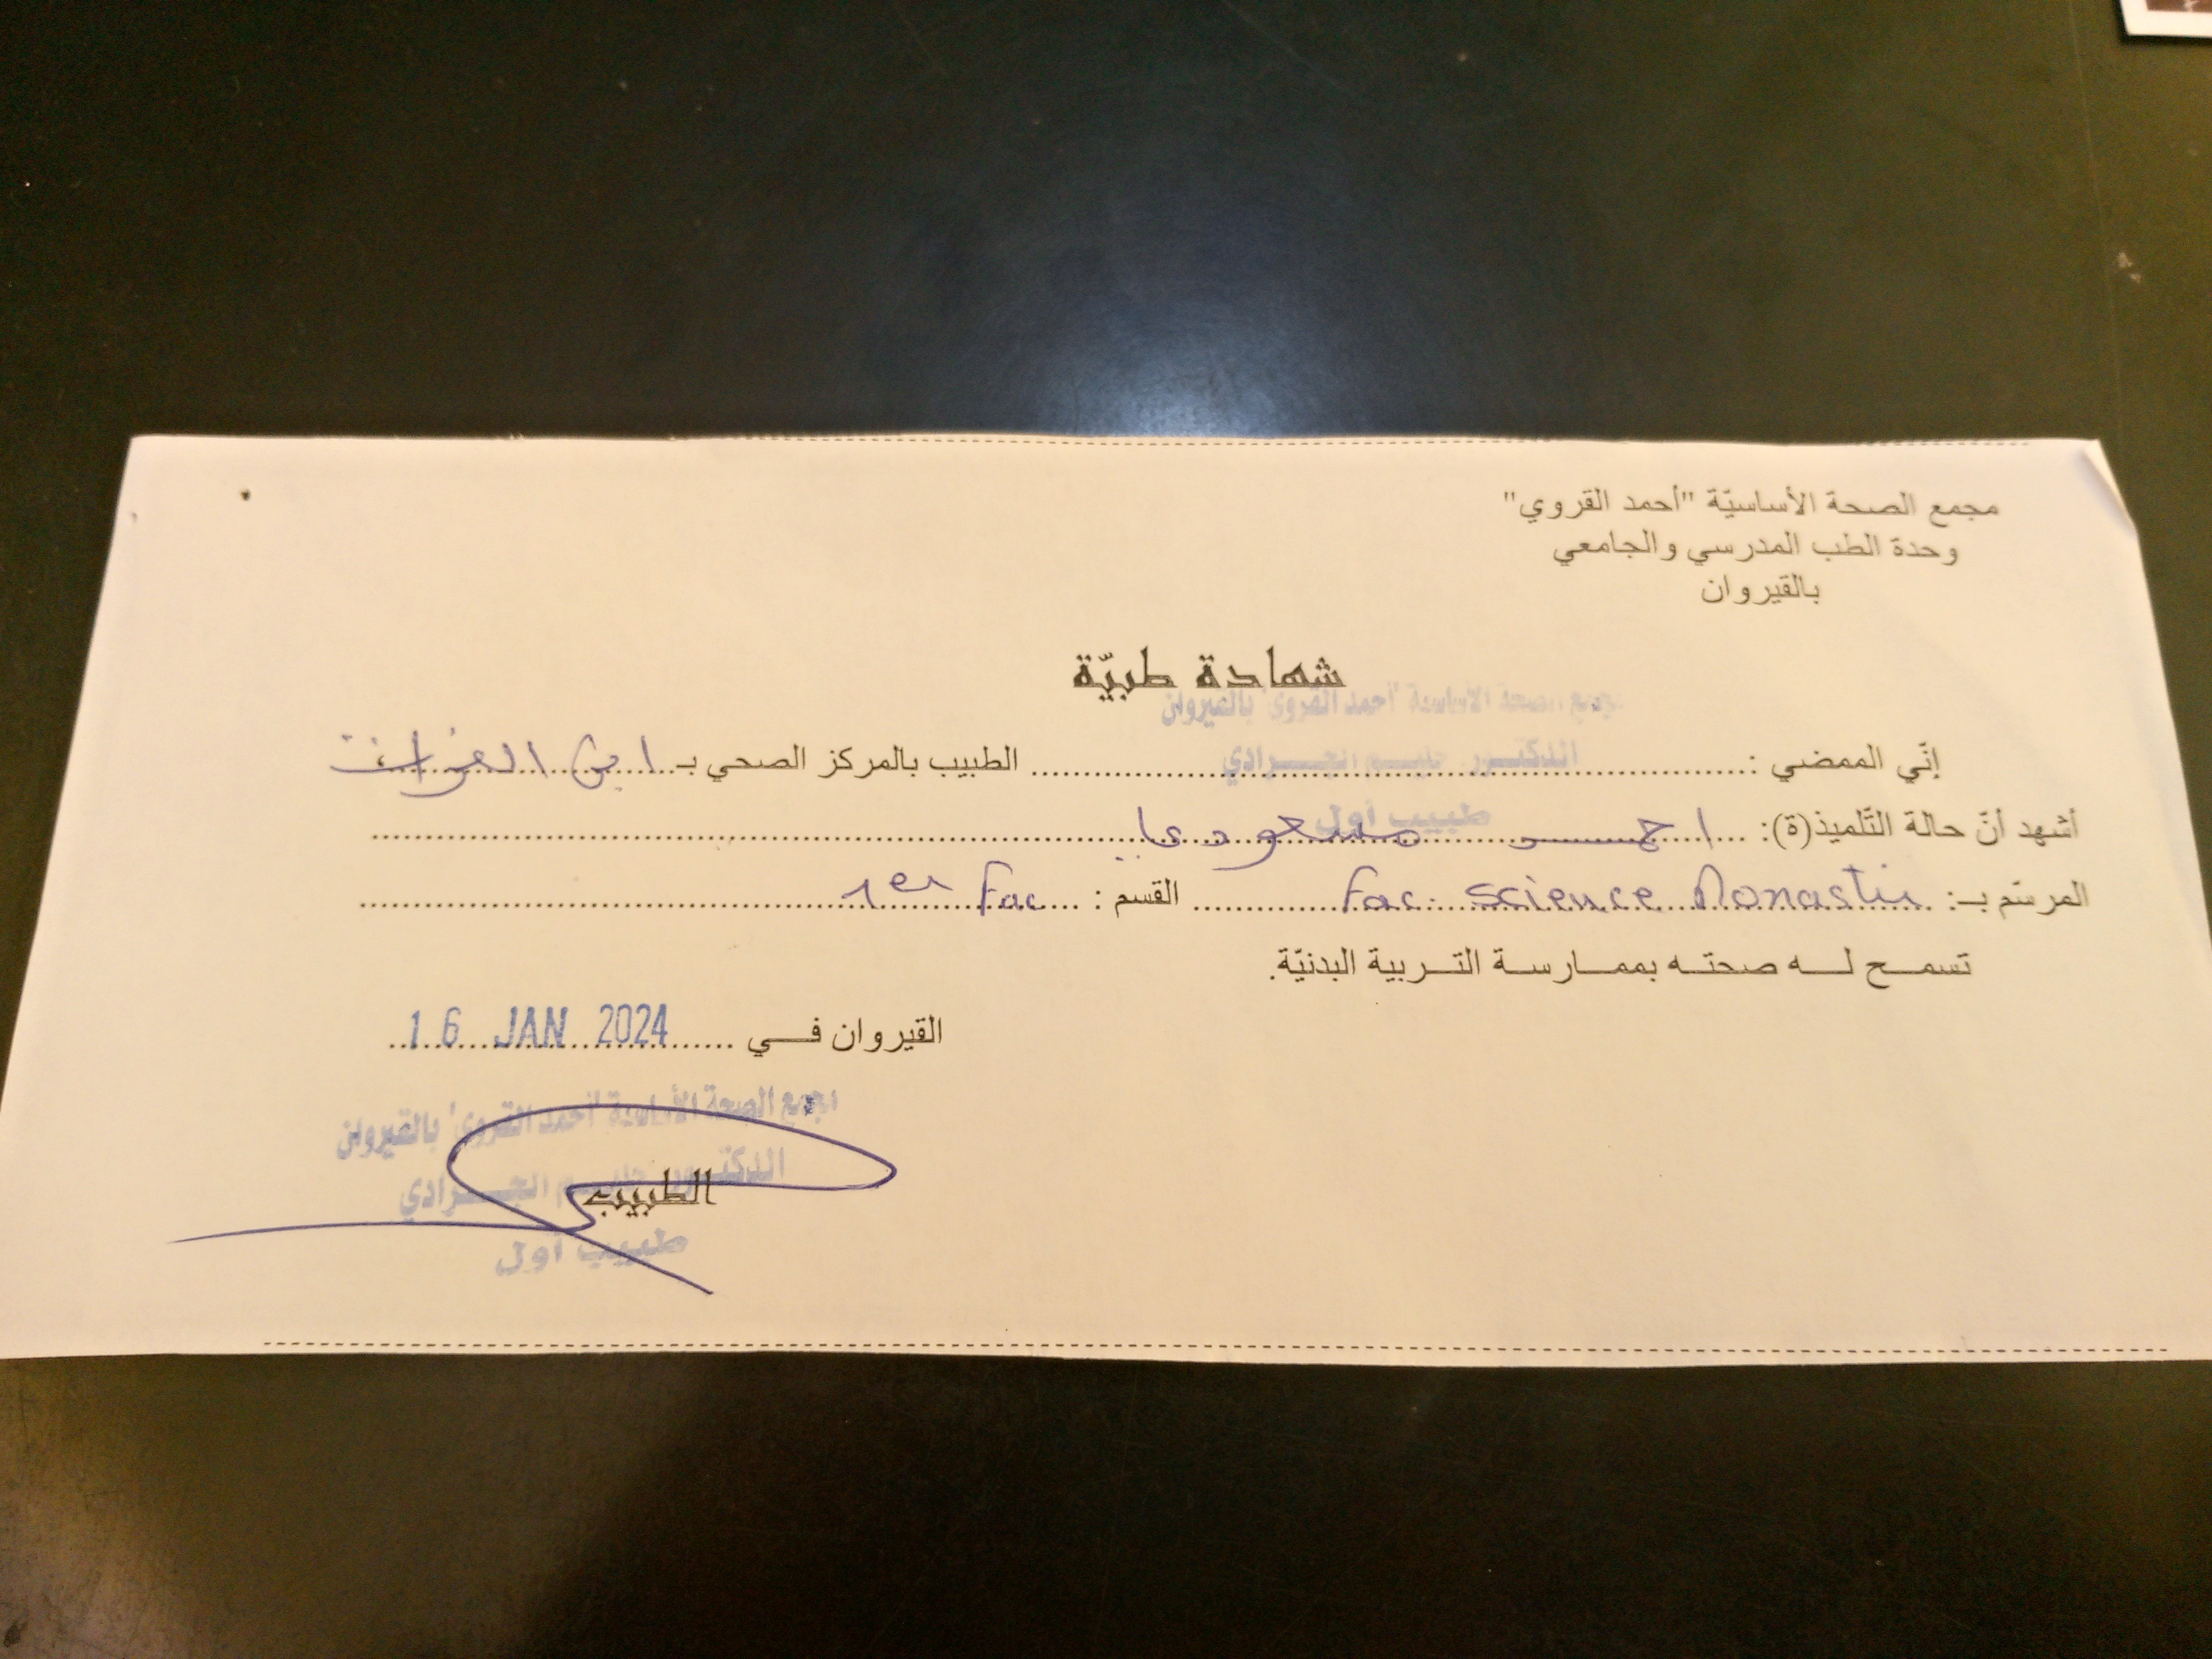 مجمع الصحة الأساسيّة "أحمد القروي"
وحدة الطب المدرسي والجامعي
بالقيروان
شهادة طبيّة
مجمع الصحة الأساسية "أحمد القروي" بالقيروان
إنّي الممضي : الدكتور الجرادي الطبيب بالمركز الصحي بـ ابن
طبيب أول
أشهد أنّ حالة التّلميذ(ة): مسعودي
المرسّم بـ: Fac. Science Monastir القسم : 1er Fac
تسمح له صحته بممارسة التربية البدنيّة.
القيروان في 16 JAN 2024
مجمع الصحة الأساسية "أحمد القروي" بالقيروان
الدكتور الجرادي
الطبيب
طبيب أول